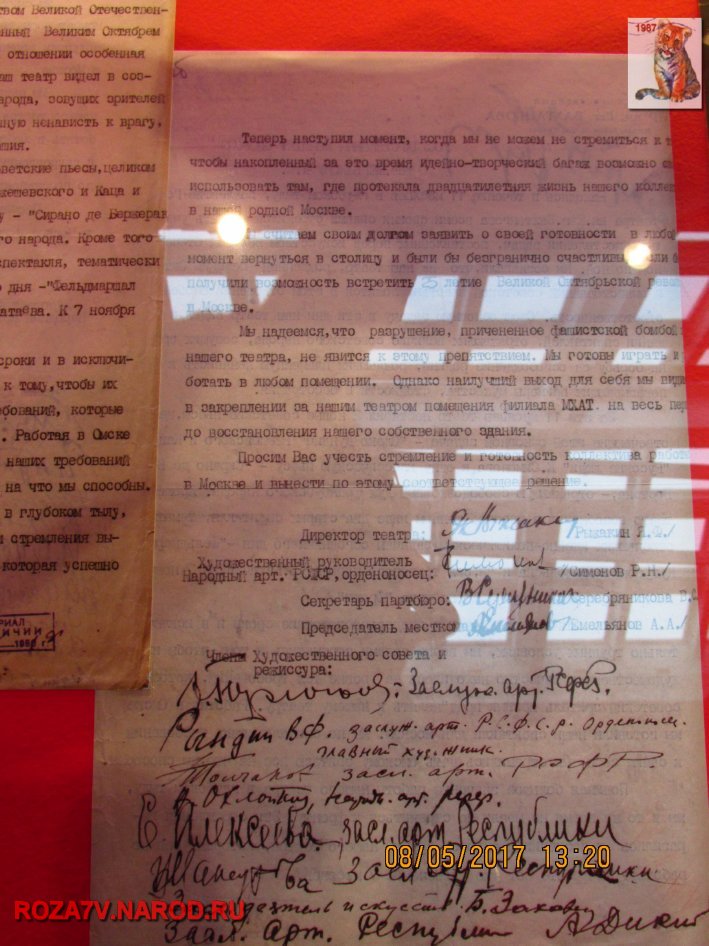 твом Великой Отечествен-
нный Великим Октябрем
отношении особенная
аш театр видел в соз-
народа, зовущих зрителей
нную ненависть к врагу,
ация.
оветские пьесы, целиком
жешевского и Каца и
у - "Сирано де Бержерак
го народа. Кроме того
спектакля, тематически
о дня -"Фельдмаршал
Катаева. К 7 ноября
сроки и в исключи-
к тому, чтобы их
ебований, которые
. Работая в Омске
наших требований
на что мы способны.
в глубоком тылу,
и стремления вы-
которая успешно
1987
Теперь наступил момент, когда мы не можем не стремиться к т
чтобы накопленный за это время идейно-творческий багаж возможно
использовать там, где протекала двадцатилетняя жизнь нашего коллек
в нашей родной Москве.
считаем своим долгом заявить о своей готовности в любой
момент вернуться в столицу и были бы безгранично счастливы если
получили возможность встретить 25 летие Великой Октябрьской револ
в Москве.
Мы надеемся, что разрушение, причененное фашистской бомбой
нашего театра, не явится к этому препятствием. Мы готовы играть и р
ботать в любом помещении. Однако наилучший выход для себя мы види
в закреплении за нашим театром помещения филиала МХАТ на весь пер
до восстановления нашего собственного здания.
Просим Вас учесть стремление и готовность коллектива работ
в Москве и вынести по этому соответствующее решение.
Директор театра: /Рыжакин Я.Ф./
Художественный руководитель
Народный арт. РСФСР, орденоносец: /Симонов Р.Н./
Секретарь партбюро: Серебрянникова
Председатель месткома /Емельянов А.А./
Члены Художественного совета и
режиссура:
Заслуж. арт. Респ.
Рындин В.Ф. заслуж. арт. Р.С.Ф.С.Р. орденонос.
главный художник.
Толчанов засл. арт. РСФСР.
Охлопков, заслуж. арт. респ.
Е. Алексеева. засл. арт. Республики
Мансурова Засл. арт. Республики
Засл. деятель искусств Б. Захава
Засл. Арт. Республики А. Дикий
08/05/2017 13:20
ROZA7V.NAROD.RU